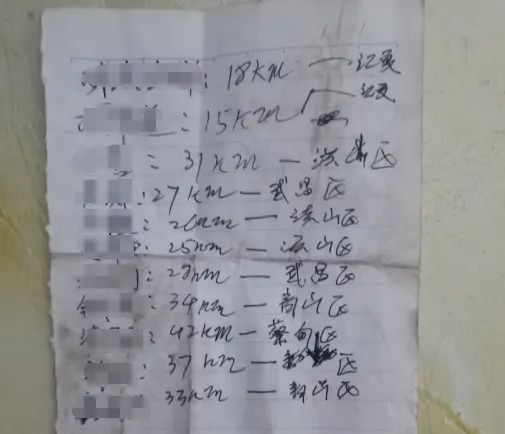 : 18KM — 江夏
: 15KM — 江夏
: 31KM — 洪山区
: 27KM — 武昌区
: 26KM — 洪山区
: 25KM — 洪山区
: 28KM — 武昌区
: 34KM — 青山区
: 42KM — 蔡甸区
: 37KM — 区
: 33KM — 青山区